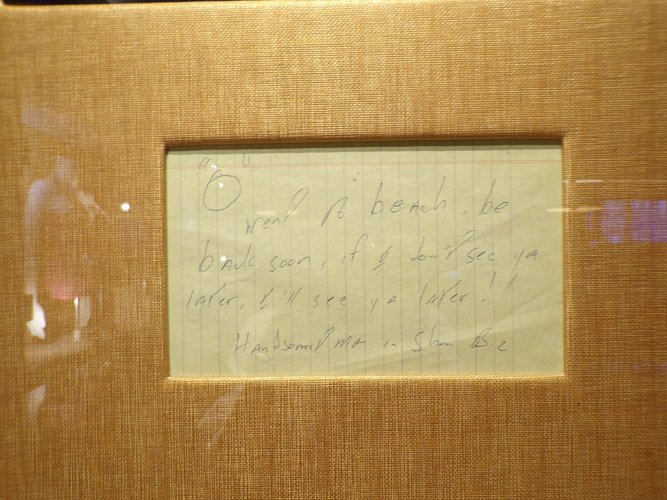 "O"
Went to beach, be
back soon, if I don't see ya
later, I'll see ya later!!
Handsomest man in Show Biz